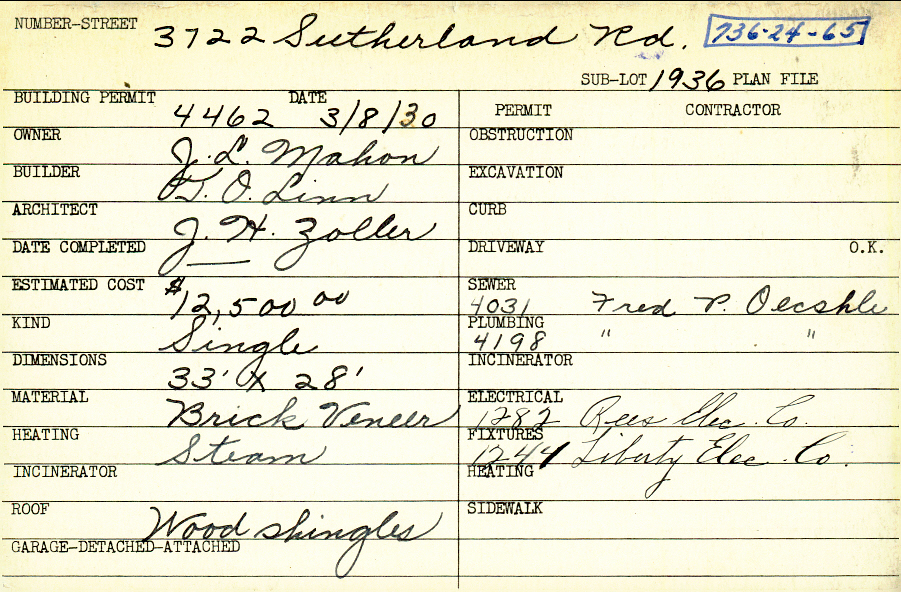 NUMBER-STREET 3722 Sutherland Rd. 736-24-65
SUB-LOT 1936 PLAN FILE
BUILDING PERMIT 4462 DATE 3/8/30
PERMIT CONTRACTOR
OWNER J. L. Mahon
OBSTRUCTION
BUILDER O. Linn
EXCAVATION
ARCHITECT J. H. Zoller
CURB
DATE COMPLETED
DRIVEWAY O.K.
ESTIMATED COST $12,500 00
SEWER 4031 Fred P. Oecshle
KIND Single
PLUMBING 4198 " "
DIMENSIONS 33' X 28'
INCINERATOR
MATERIAL Brick Veneer
ELECTRICAL 1282 Rees Elec. Co.
HEATING Steam
FIXTURES 1244 Liberty Elec. Co.
INCINERATOR
HEATING
ROOF Wood shingles
SIDEWALK
GARAGE-DETACHED-ATTACHED